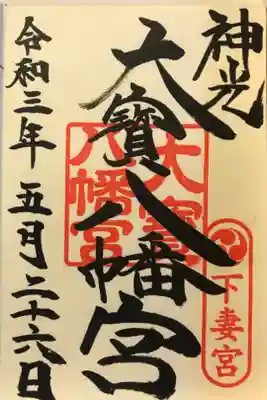 神光
下妻宮
大寳八幡宮
大寳
八幡宮
令和三年五月二十六日